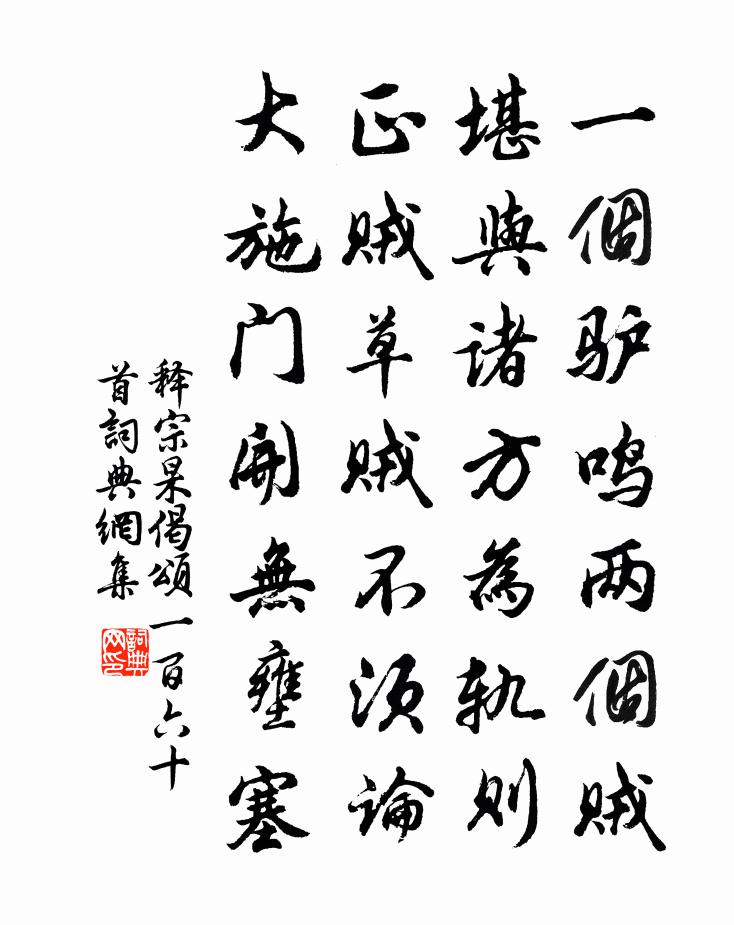 一個驴鸣两個贼
堪與诸方為轨则
正贼草贼不须論
大施门開無壅塞
释宗杲偈頌一百六十
首詞典網集
詞典网印